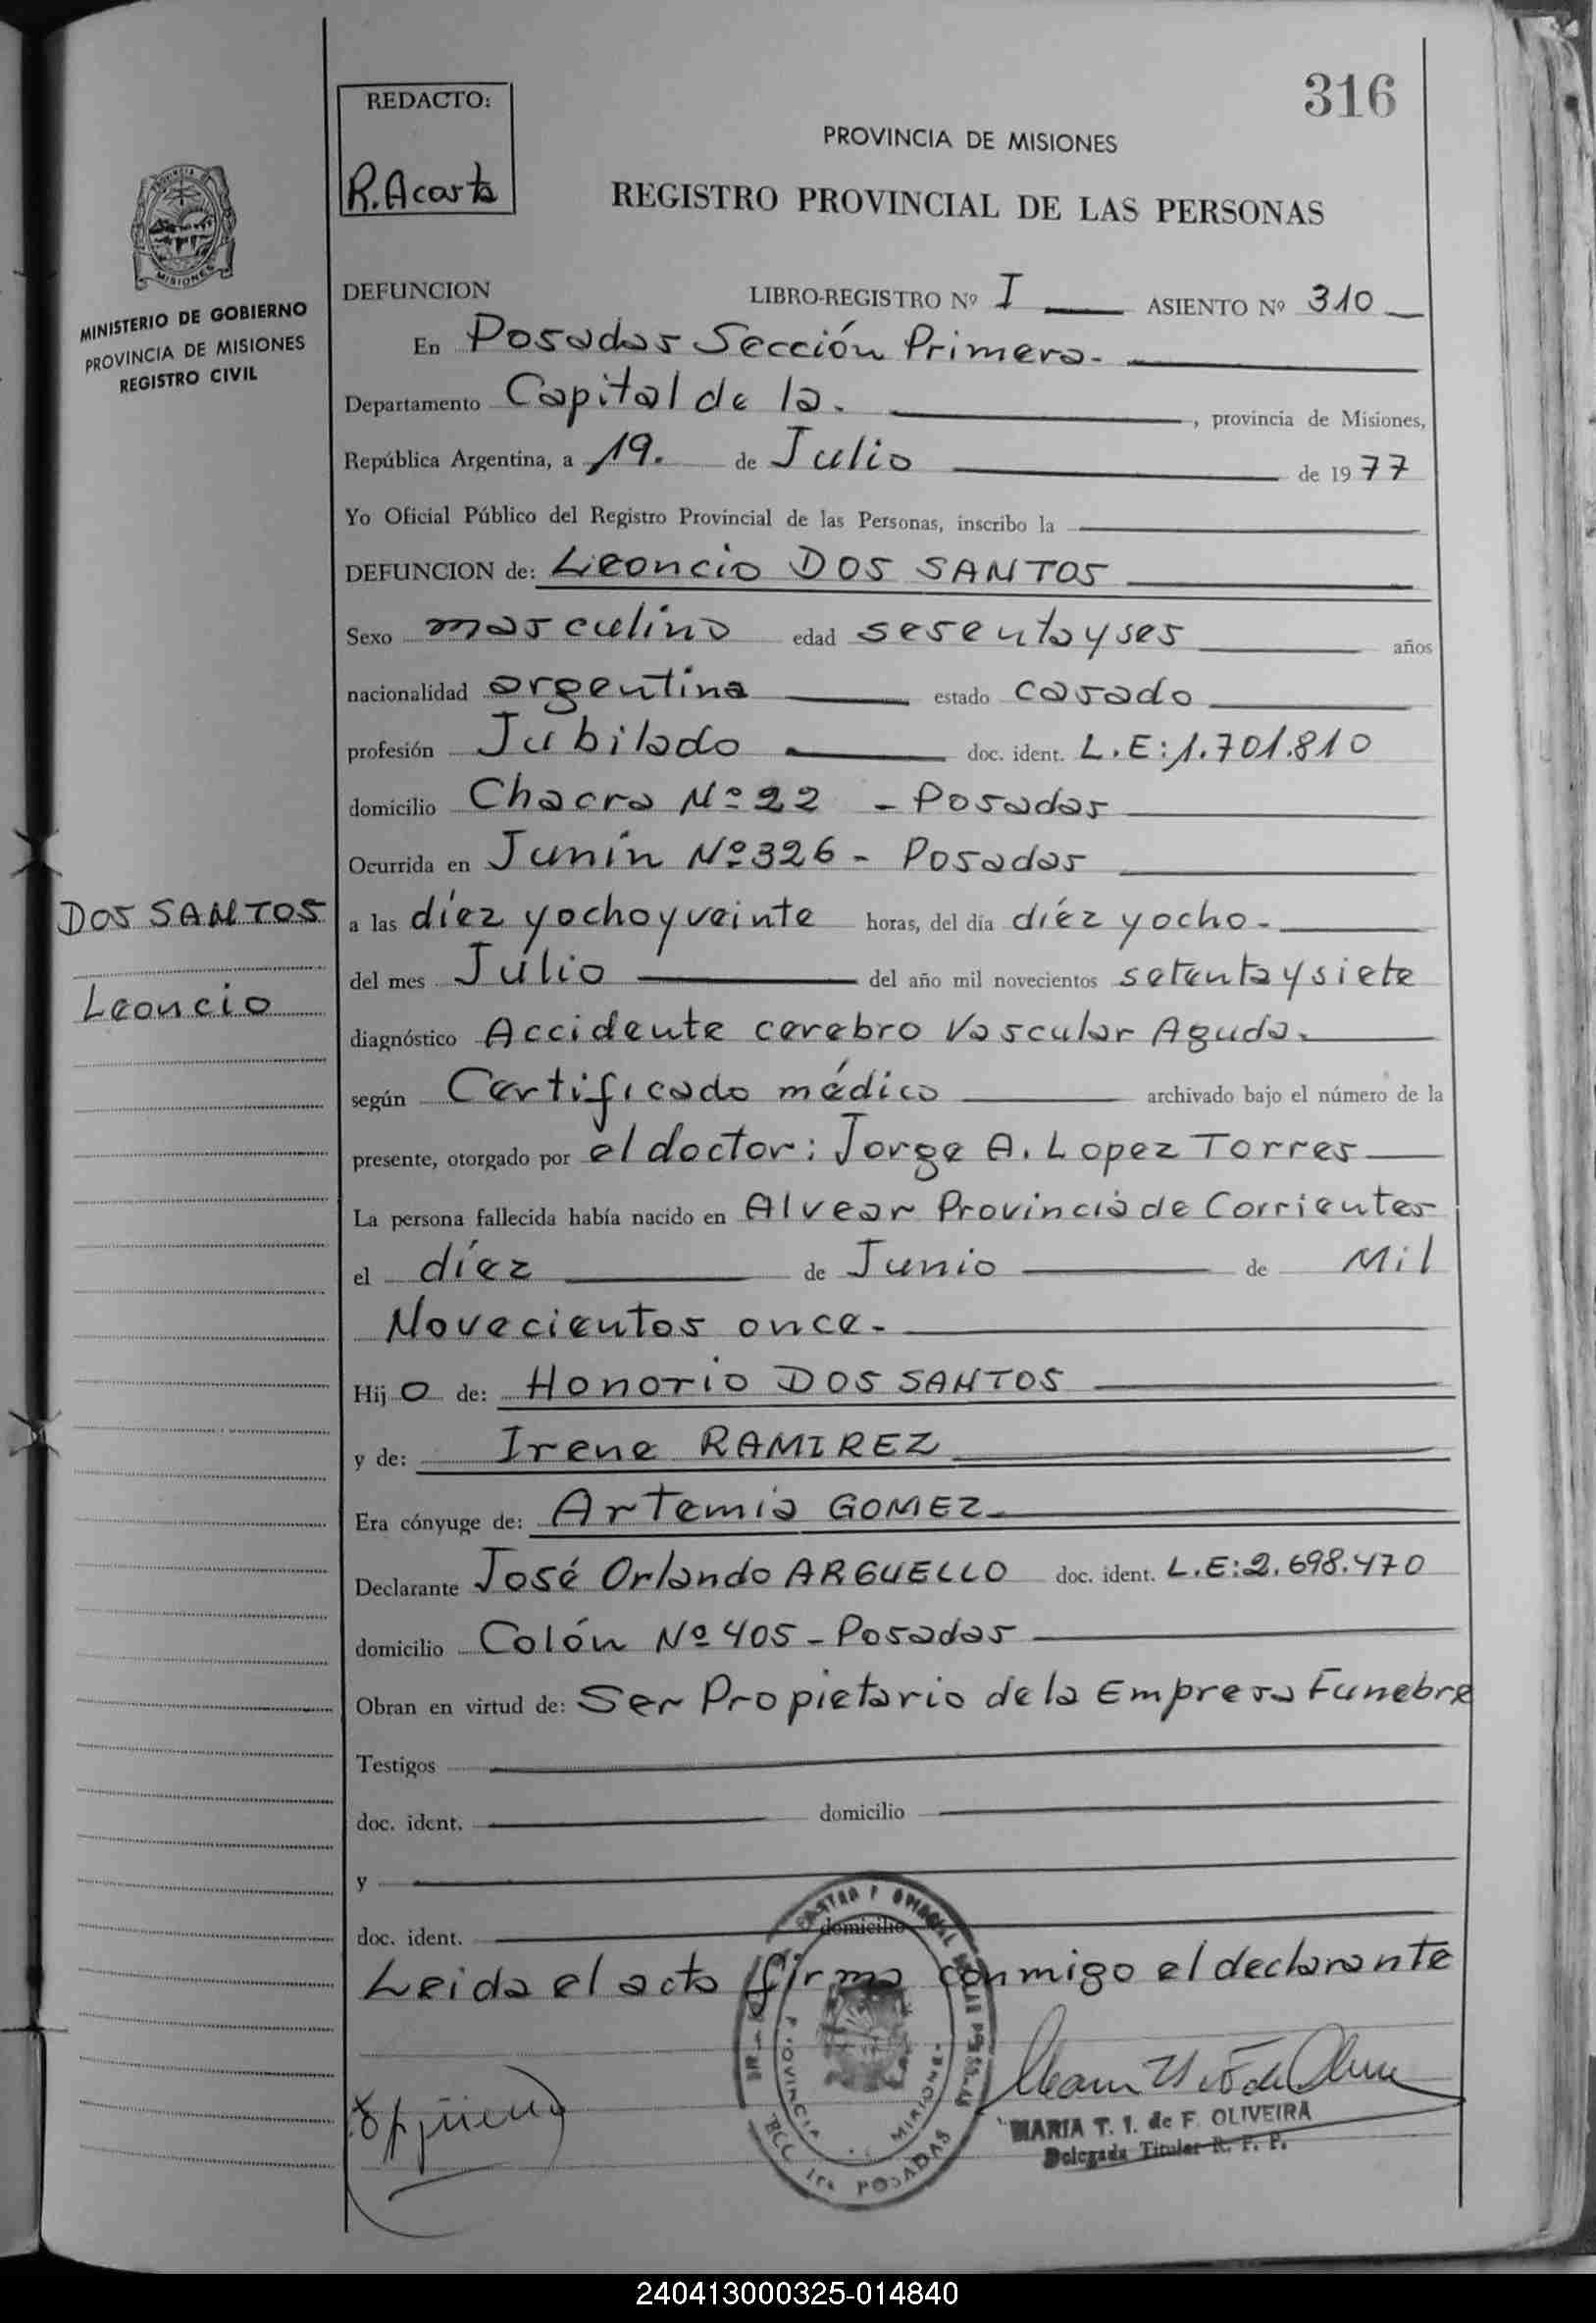 316
REDACTO:
R. Acosta
PROVINCIA DE MISIONES
REGISTRO PROVINCIAL DE LAS PERSONAS
MISIONES
MINISTERIO DE GOBIERNO
PROVINCIA DE MISIONES
REGISTRO CIVIL
DEFUNCION LIBRO-REGISTRO Nº I ASIENTO Nº 310
En Posadas Sección Primera.
Departamento Capital de la. , provincia de Misiones,
República Argentina, a 19. de Julio de 1977
Yo Oficial Público del Registro Provincial de las Personas, inscribo la
DEFUNCION de: Leoncio DOS SANTOS
Sexo masculino edad sesenta y ses años
nacionalidad argentina estado casado
profesión Jubilado doc. ident. L.E:1.701.810
domicilio Chacra Nº 22 - Posadas
Ocurrida en Junín Nº 326 - Posadas
DOS SANTOS
Leoncio
a las díez y ocho y veinte horas, del día díez y ocho.
del mes Julio del año mil novecientos setenta y siete
diagnóstico Accidente cerebro Vascular Agudo.
según Certificado médico archivado bajo el número de la
presente, otorgado por el doctor: Jorge A. Lopez Torres
La persona fallecida había nacido en Alvear Provincia de Corrientes
el díez de Junio de Mil
Novecientos once.
Hijo de: Honorio DOS SANTOS
y de: Irene RAMIREZ
Era cónyuge de: Artemia GOMEZ
Declarante José Orlando ARGUELLO doc. ident. L.E:2.698.470
domicilio Colón Nº 405 - Posadas
Obran en virtud de: Ser Propietario de la Empresa Funebre
Testigos
doc. ident. domicilio
y
doc. ident. domicilio
Leida el acta firma conmigo el declarante
PROVINCIA MISIONES
POSADAS
MARIA T. I. de F. OLIVEIRA
Delegada Titular R. P. P.
240413000325-014840